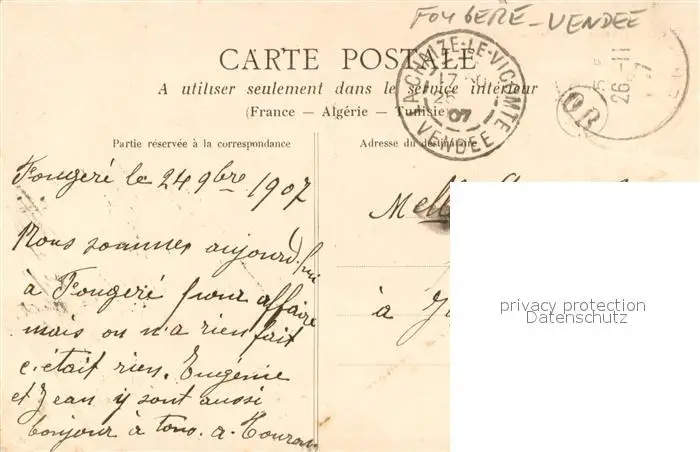 FOUGERÉ - VENDÉE
CARTE POSTALE
A utiliser seulement dans le service intérieur
(France — Algérie — Tunisie)
LA CHAIZE-LE-VICOMTE
17
25
07
VENDÉE
26-11
OR
Partie réservée à la correspondance
Adresse du destinataire
Fougeré le 24 9bre 1907
Nous sommes aujourd'hui
à Fougeré pour affaire
mais on n'a rien fait
c'était rien. Eugénie
et Jean y sont aussi
bonjour à tous. a.
Melle
à
privacy protection
Datenschutz